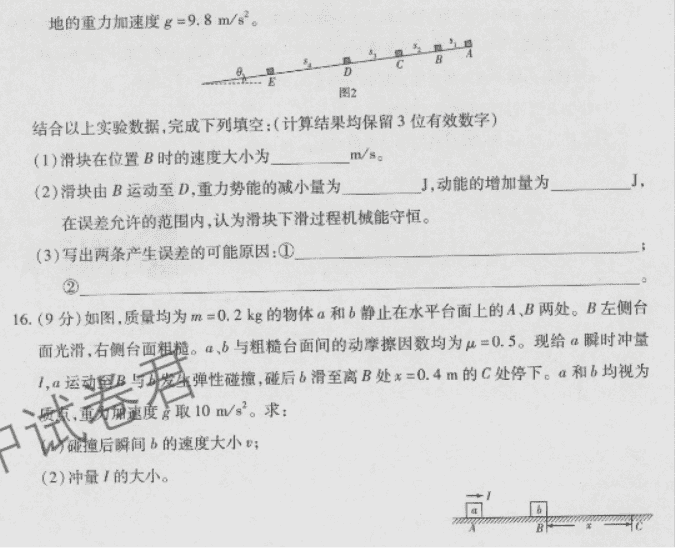 地的重力加速度 g=9.8 m/s²。
θ E s₄ D s₃ C s₂ B s₁ A
图2
结合以上实验数据,完成下列填空:(计算结果均保留3位有效数字)
(1)滑块在位置B时的速度大小为________m/s。
(2)滑块由B运动至D,重力势能的减小量为________J,动能的增加量为________J,
在误差允许的范围内,认为滑块下滑过程机械能守恒。
(3)写出两条产生误差的可能原因:①________;
②________。
16.(9分)如图,质量均为m=0.2 kg的物体a和b静止在水平台面上的A、B两处。B左侧台
面光滑,右侧台面粗糙。a、b与粗糙台面间的动摩擦因数均为μ=0.5。现给a瞬时冲量
I,a运动至B与b发生弹性碰撞,碰后b滑至离B处x=0.4 m的C处停下。a和b均视为
质点,重力加速度g取10 m/s²。求:
(1)碰撞后瞬间b的速度大小v;
(2)冲量I的大小。
I
a b
A B x C
试卷君